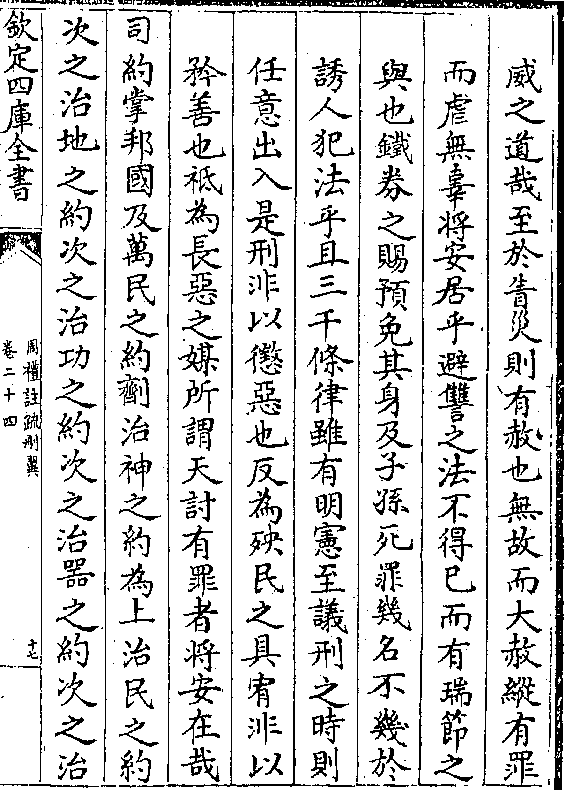 威之道哉至於眚災則有赦也無故而大赦縱有罪
而虐無辜將安居乎避讐之法不得已而有瑞節之
與也鐵券之賜預免其身及子孫死罪幾名不幾於
誘人犯法乎且三千條律雖有明憲至議刑之時則
任意出入是刑非以懲惡也反為殃民之具宥非以
矜善也祇為長惡之媒所謂天討有罪者將安在哉
司約掌邦國及萬民之約劑治神之約為上治民之約
次之治地之約次之治功之約次之治器之約次之治
欽定四庫全書
周禮註疏刪翼
卷二十四
十七